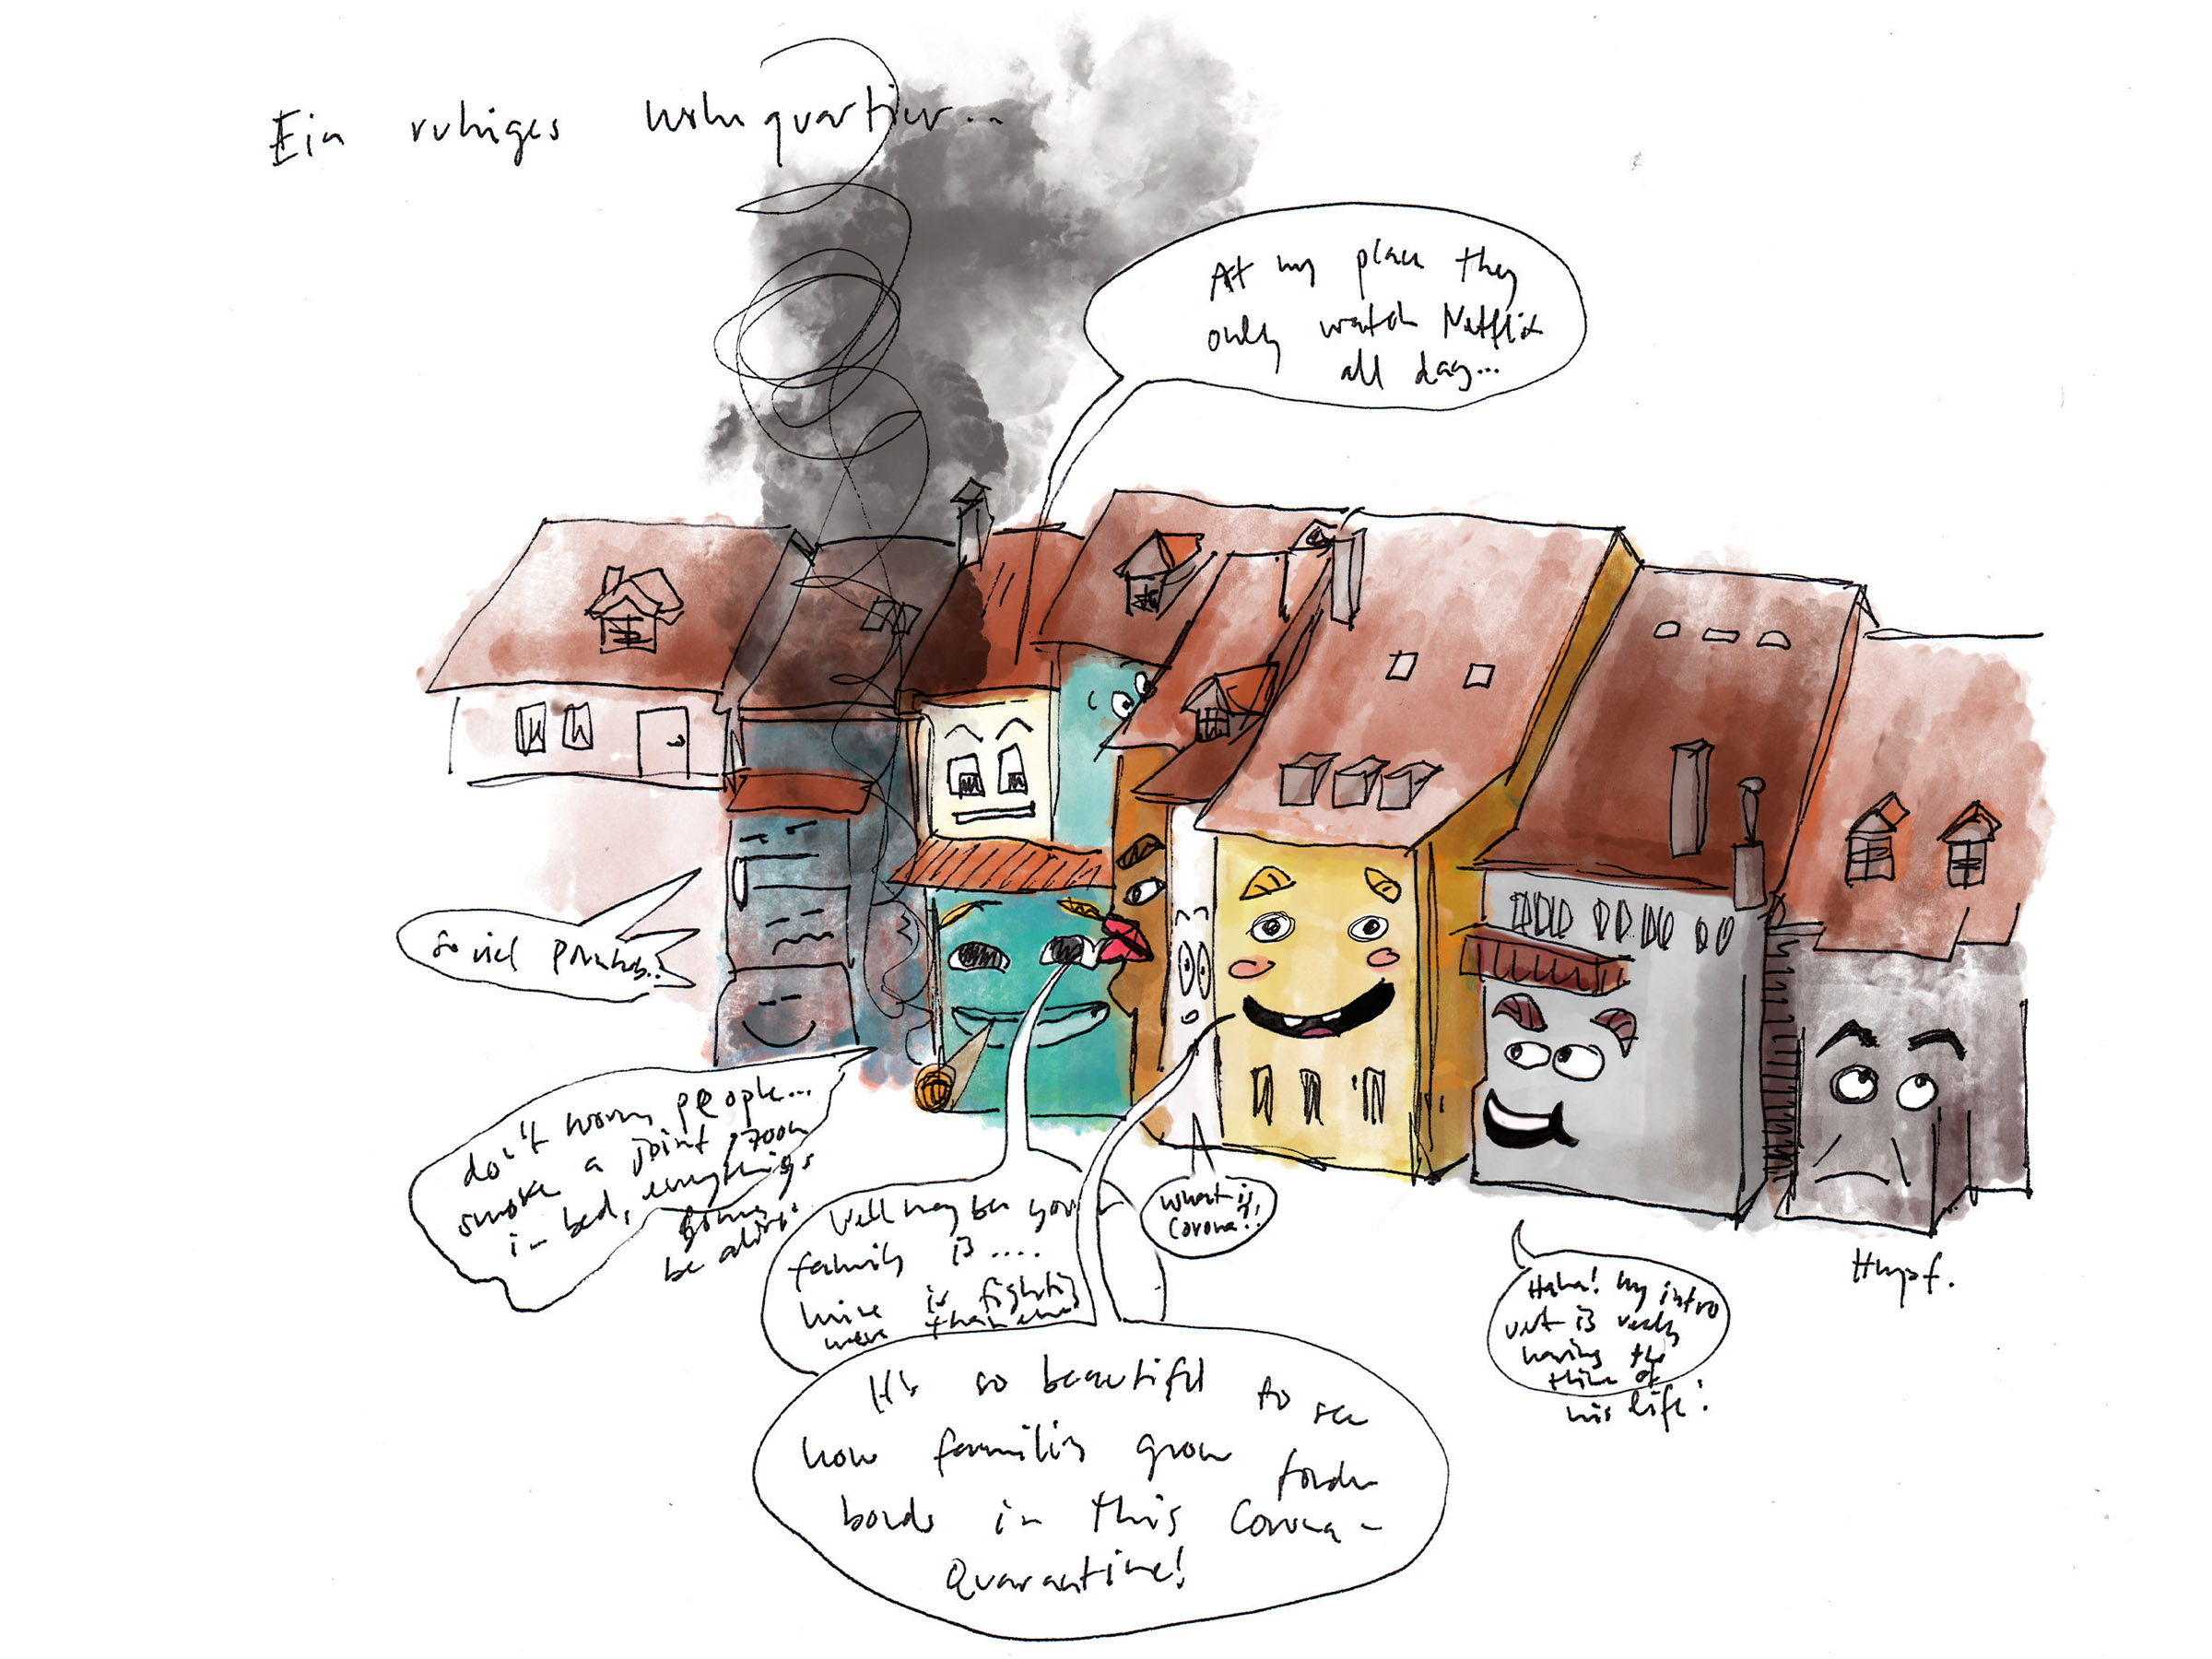 Ein ruhiges Wohnquartier...
At my place they
only watch Netflix
all day...
So viel Pornhub..
don't worry people...
smoke a joint, zoom
in bed, everythings
gonna
be alirg
Well may be your
family is ....
mine is fighting
more than ever
What is
Corona?!
It's so beautiful to see
how familis grow fonder
bonds in this Corona-
Quarantine!
Haha! my intro
vert is really
having the
time of
his life!
Hmpf.